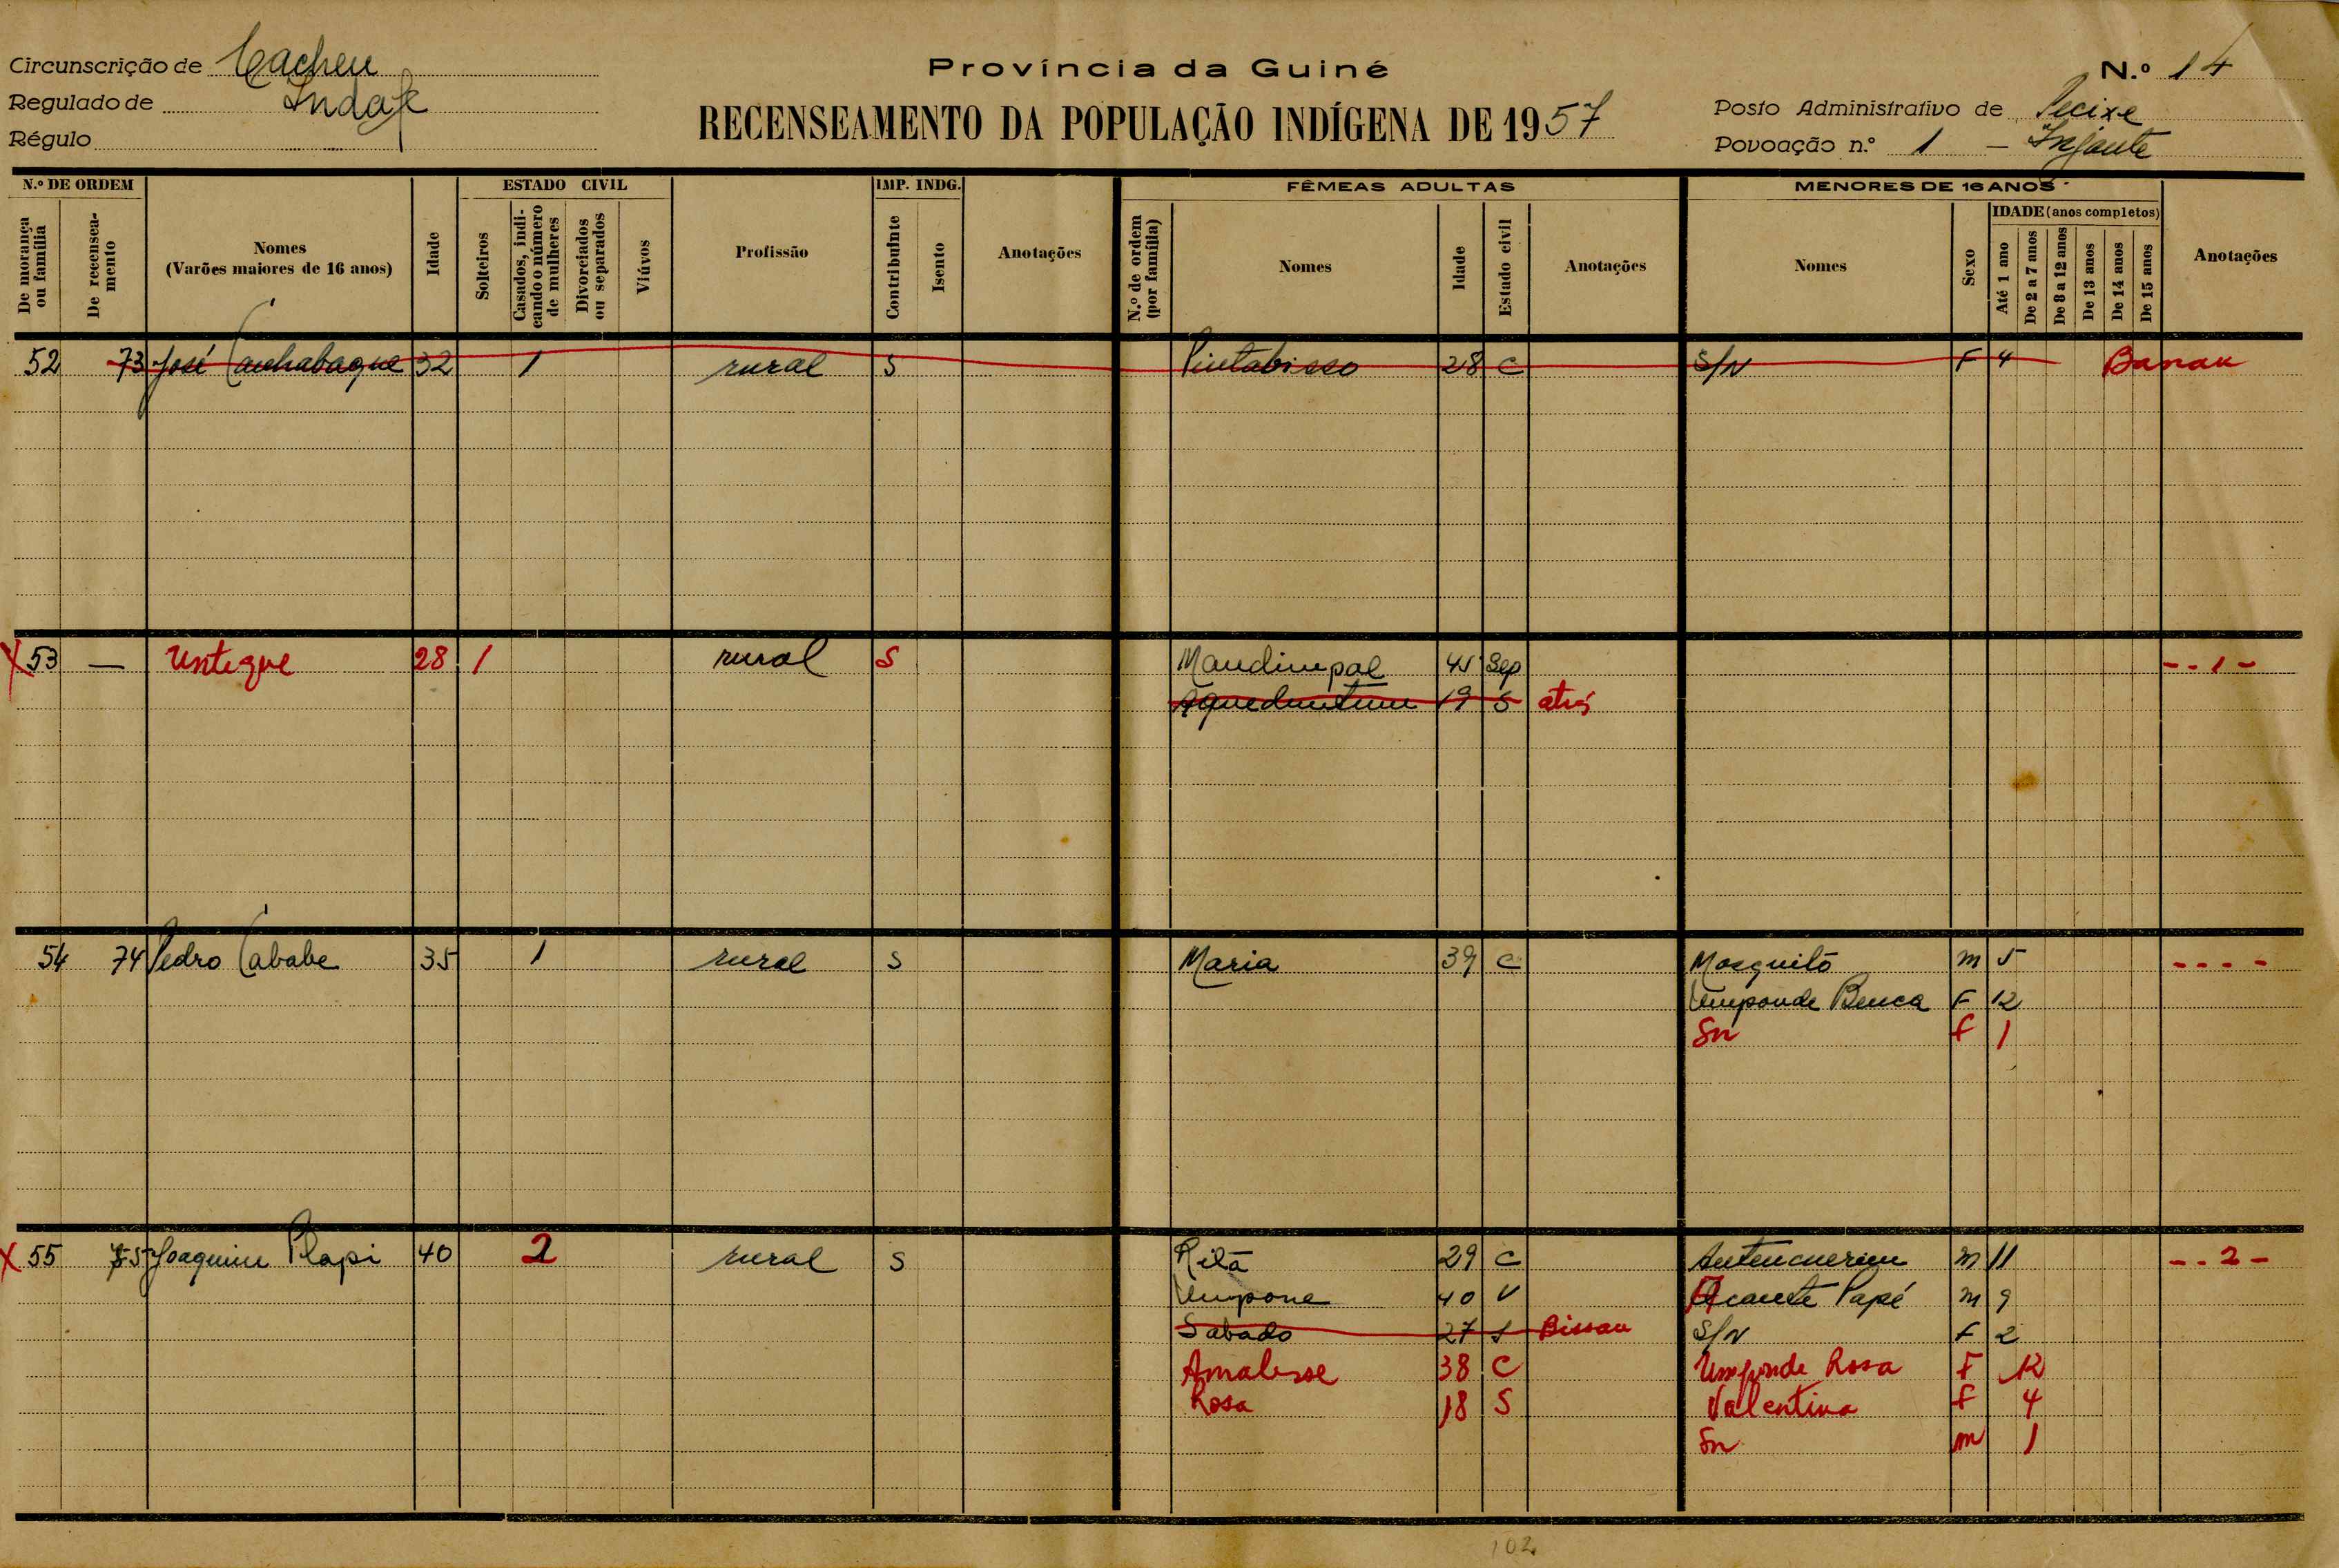 Circunscrição de Cacheu
Regulado de Indafe
Régulo
Província da Guiné
RECENSEAMENTO DA POPULAÇÃO INDÍGENA DE 1957
N.º 14
Posto Administrativo de Pecixe
Povoação n.º 1 – Infante
N.º DE ORDEM
De morança ou família
De recenseamento
Nomes
(Varões maiores de 16 anos)
Idade
ESTADO CIVIL
Solteiros
Casados, indicando o número de mulheres
Divorciados ou separados
Viúvos
Profissão
IMP. INDG.
Contribuinte
Isento
Anotações
FÊMEAS ADULTAS
N.º de ordem (por família)
Nomes
Idade
Estado civil
Anotações
MENORES DE 16 ANOS
Nomes
Sexo
IDADE (anos completos)
Até 1 ano
De 2 a 7 anos
De 8 a 12 anos
De 13 anos
De 14 anos
De 15 anos
Anotações
52 73 José Canhabaque 32 1 rural S Pintabisso 28 C S/N F 4 Banau
X 53 — Untegue 28 1 rural S Maudimpal 45 Sep - - 1 -
19 S atrás
54 74 Pedro Cababe 35 1 rural S Maria 39 C Mosquitó m 5 - - - -
Umponde Benca F 12
Sn f 1
X 55 75 Joaquim Plapi 40 2 rural S Ritá 29 C m 11 - - 2 -
Umpone 40 V Acante Papé m 9
Sabado 27 S Bissau S/N F 2
Amalesse 38 C Umponde Rosa F 12
Rosa 18 S Valentina f 4
Sn m 1
102